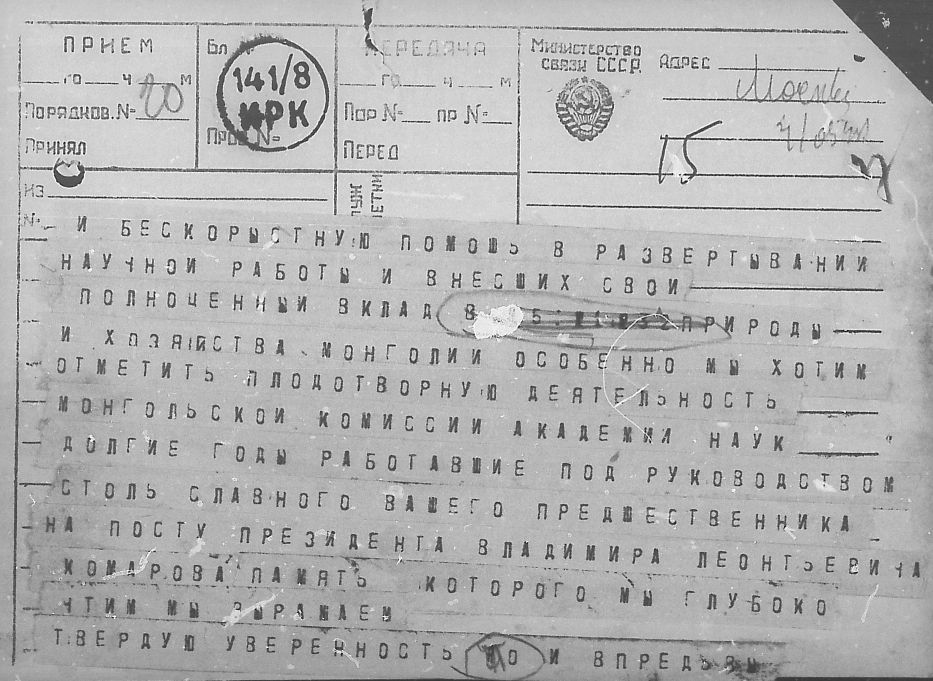 ПРИЕМ
__ го __ ч __ м
Порядков. №- 20
Принял
Бл
141/8
ИРК
Пров №-
ПЕРЕДАЧА
__ го __ ч __ м
Пор №- __ пр №- __
Перед
Министерство
связи СССР.
Адрес
Москвы
15
из
№-
И БЕСКОРЫСТНУЮ ПОМОШЬ В РАЗВЕРТЫВАНИИ
НАУЧНОИ РАБОТЫ И ВНЕСШИХ СВОИ
ПОЛНОЦЕННЫИ ВКЛАД В ПРИРОДЫ
И ХОЗЯИСТВА МОНГОЛИИ ОСОБЕННО МЫ ХОТИМ
ОТМЕТИТЬ ПЛОДОТВОРНУЮ ДЕЯТЕЛЬНОСТЬ
МОНГОЛЬСКОИ КОМИССИИ АКАДЕМИИ НАУК
ДОЛГИЕ ГОДЫ РАБОТАВШИЕ ПОД РУКОВОДСТВОМ
СТОЛЬ СЛАВНОГО ВАШЕГО ПРЕДШЕСТВЕННИКА
НА ПОСТУ ПРЕЗИДЕНТА ВЛАДИМИРА ЛЕОНТЬЕВИЧА
КОМАРОВА ПАМЯТЬ КОТОРОГО МЫ ГЛУБОКО
ЧТИМ МЫ ВЫРАЖАЕМ
ТВЕРДУЮ УВЕРЕННОСТЬ ТО И ВПРЕДЬ ВЫ